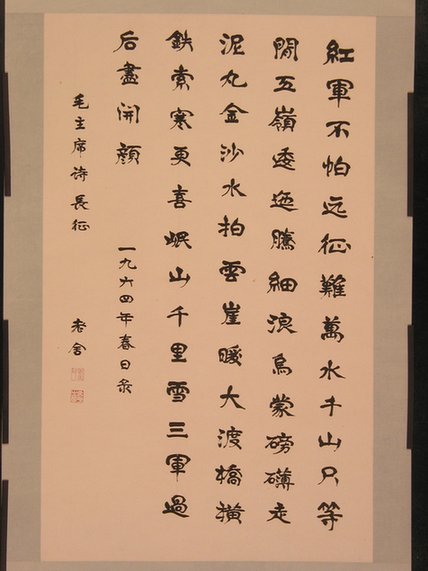 紅軍不怕远征難萬水千山只等
閒五嶺逶迤騰細浪烏蒙磅礴走
泥丸金沙水拍雲崖暖大渡橋橫
鉄索寒更喜岷山千里雪三軍過
后盡開顔
毛主席诗長征
一九六四年春日录
老舍